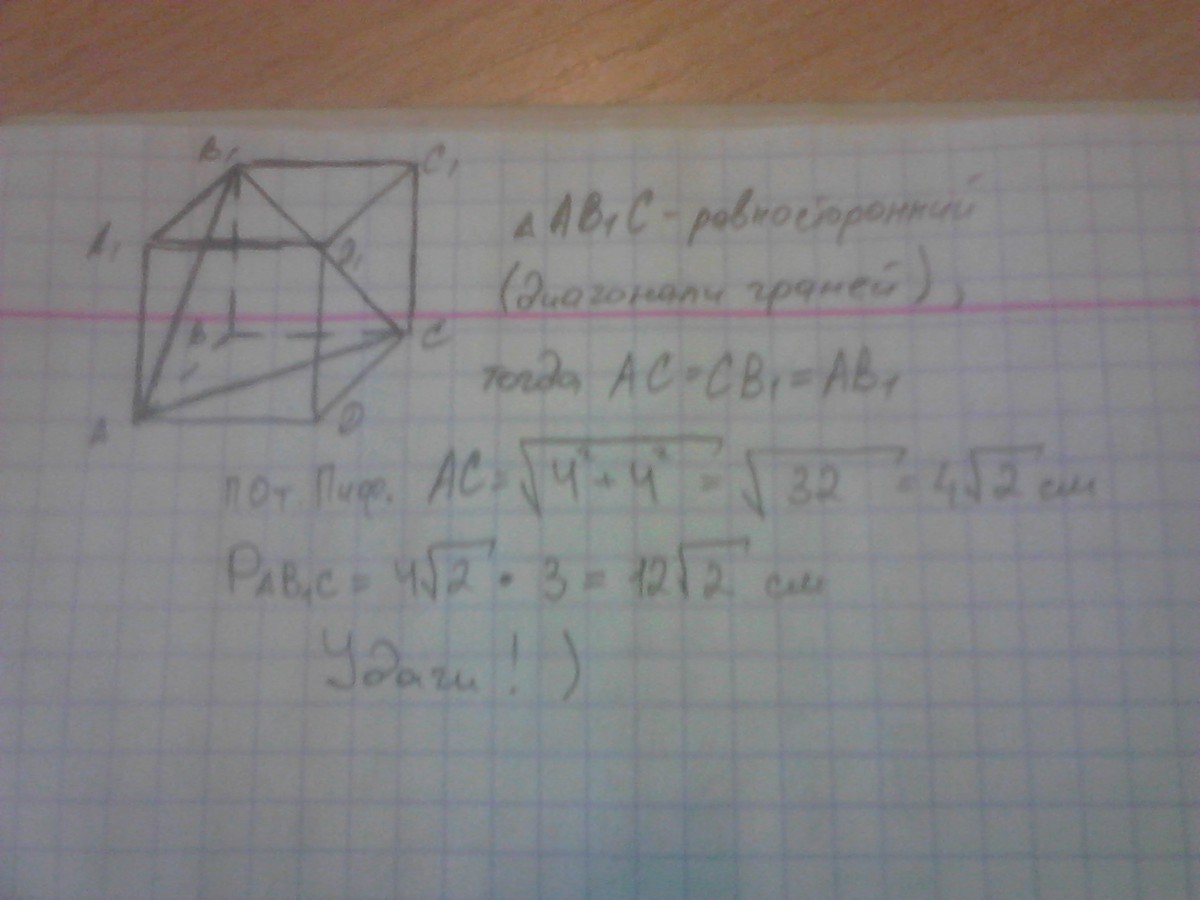 B₁
C₁
A₁
D₁
B
C
A
D
△ AB₁C - равносторонний
(диагонали граней),
тогда AC = CB₁ = AB₁
по т. Пиф. AC = √4² + 4² = √32 = 4√2 см
P AB₁C = 4√2 • 3 = 12√2 см
Удачи! )